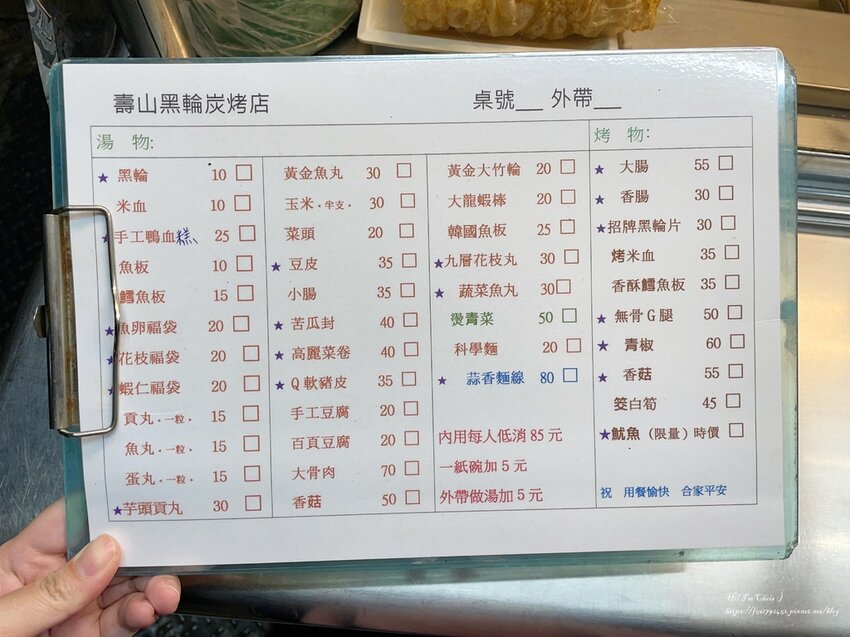 壽山黑輪炭烤店 桌號__ 外帶__
湯 物:
★ 黑輪 10 □
米血 10 □
★ 手工鴨血糕 25 □
魚板 10 □
鱈魚板 15 □
★ 魚卵福袋 20 □
★ 花枝福袋 20 □
★ 蝦仁福袋 20 □
貢丸 • 一粒 • 15 □
魚丸 • 一粒 • 15 □
蛋丸 • 一粒 • 15 □
★ 芋頭貢丸 30 □
黃金魚丸 30 □
玉米 • 半支 • 30 □
菜頭 20 □
★ 豆皮 35 □
小腸 35 □
★ 苦瓜封 40 □
★ 高麗菜卷 40 □
★ Q軟豬皮 35 □
手工豆腐 20 □
百頁豆腐 20 □
大骨肉 70 □
香菇 50 □
黃金大竹輪 20 □
大龍蝦棒 20 □
韓國魚板 25 □
★ 九層花枝丸 30 □
★ 蔬菜魚丸 30 □
燙青菜 50 □
科學麵 20 □
★ 蒜香麵線 80 □
內用每人低消 85 元
一紙碗加 5 元
外帶做湯加 5 元
烤 物:
★ 大腸 55 □
★ 香腸 30 □
★ 招牌黑輪片 30 □
烤米血 35 □
香酥鱈魚板 35 □
★ 無骨G腿 50 □
★ 青椒 60 □
★ 香菇 55 □
筊白筍 45 □
★ 魷魚 (限量) 時價 □
祝 用餐愉快 合家平安
Hi! I'm Chris :)